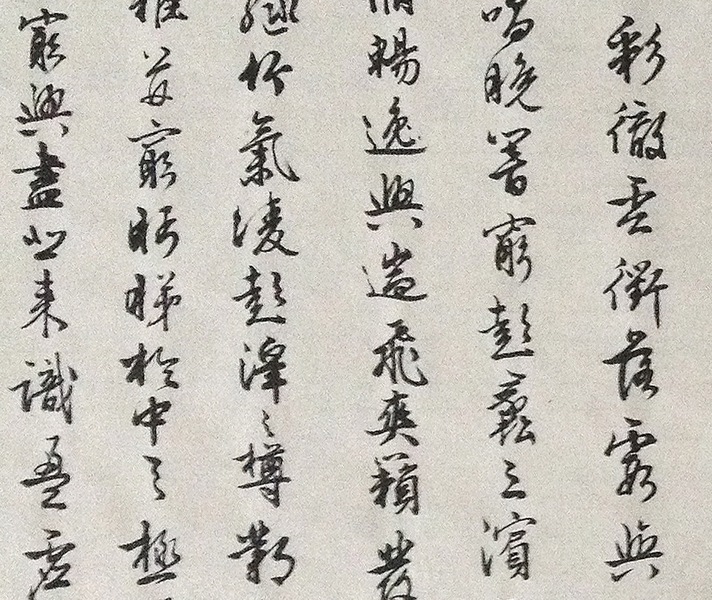 彩徹云衢落霞與
唱晚響窮彭蠡之濱
暢逸興遄飛爽籟發
竹氣凌彭澤之樽鄴
難并窮眄睇於中天極
窮興盡悲來識盈虛